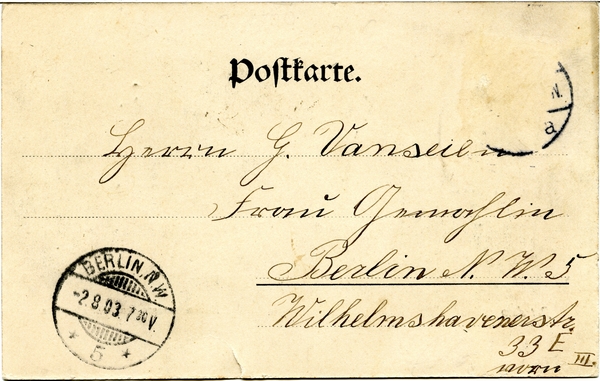 Postkarte.
N.
a
Herrn G. Vanseilen
Frau Gemahlin
Berlin N. W. 5
Wilhelmshavenerstr.
33 E
vorn III.
BERLIN, N.W
-2.8.03. 7 30 V.
* 5 *